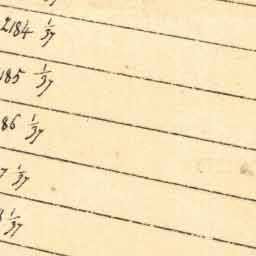 2184 1/37
185 1/37
86 1/37
7 1/37
1/37